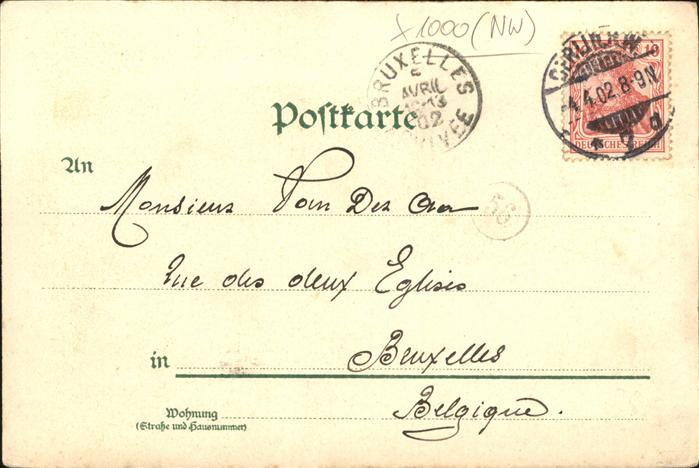 +1000 (NW)
BRUXELLES
5
AVRIL
02
BERLIN N.W.
4.4.02. 8-9N.
* 7 d
10
DEUTSCHES REICH
Postkarte
An
Monsieur Van Der
56
Rue des deux Eglises
in Bruxelles
Wohnung Belgique.
(Straße und Hausnummer)